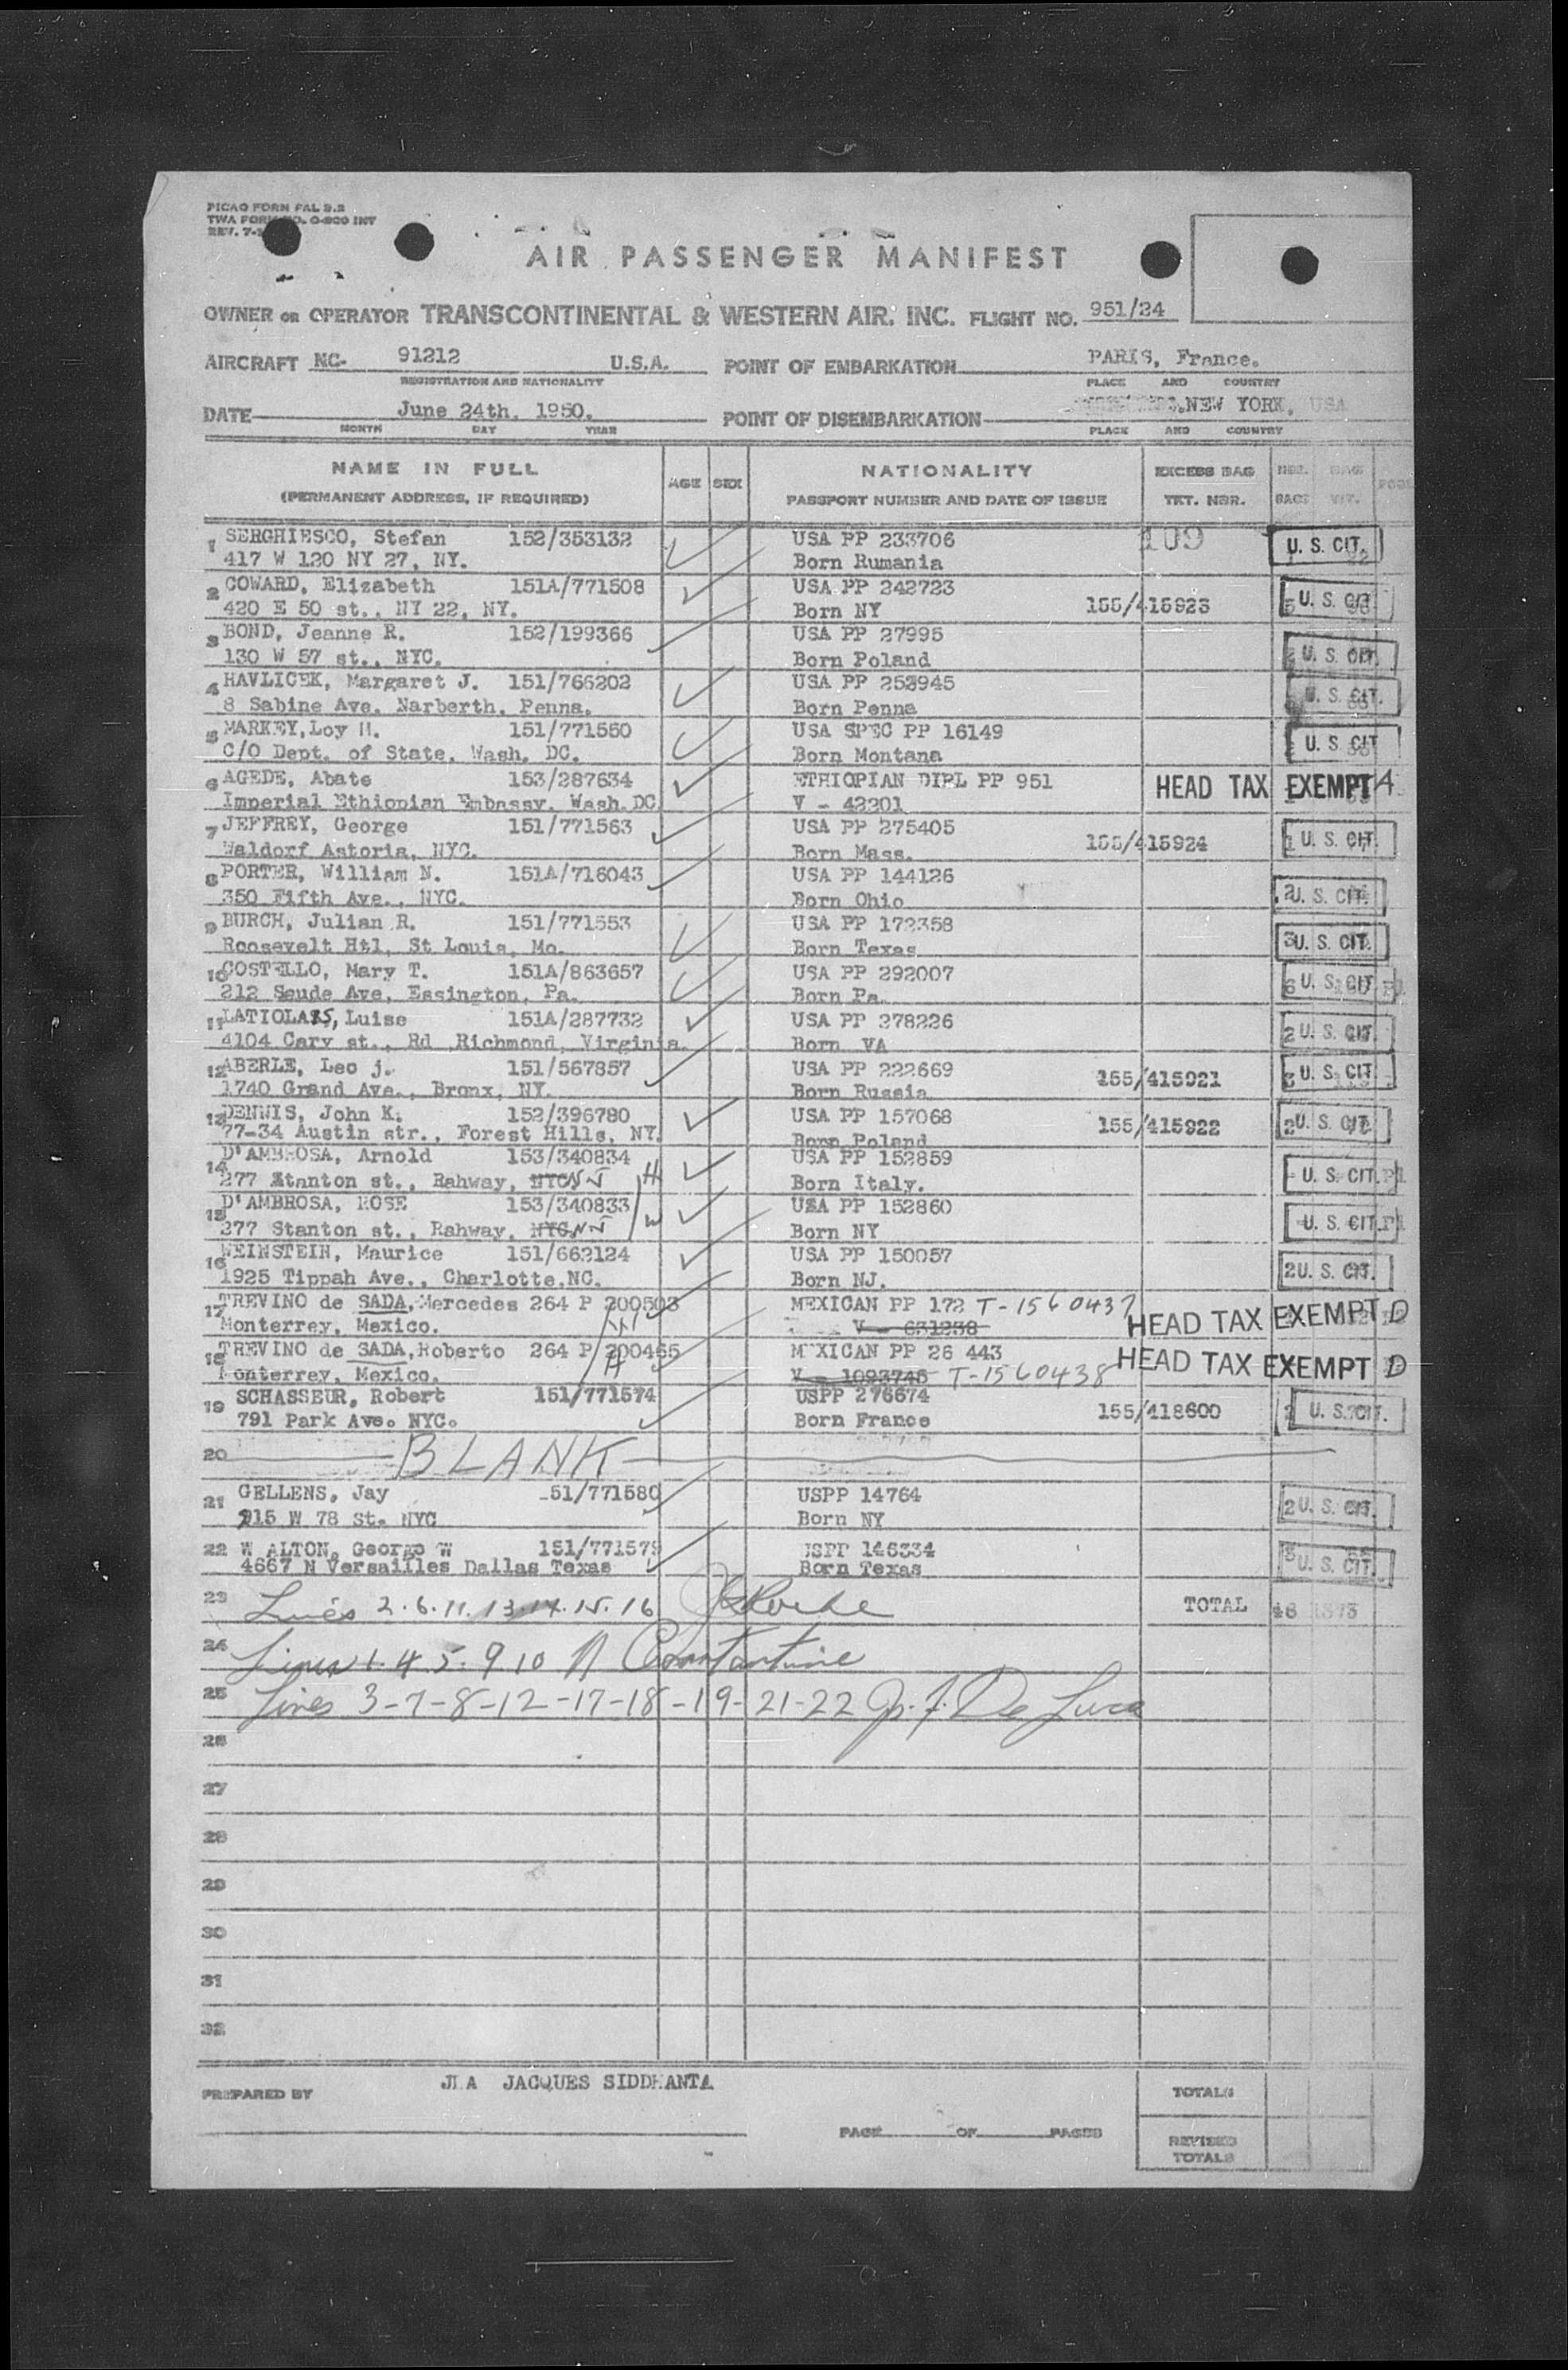 PICAO FORM PAL 2.2
TWA FORM NO. O-800 INT
REV. 7-
AIR PASSENGER MANIFEST
OWNER OR OPERATOR TRANSCONTINENTAL & WESTERN AIR. INC. FLIGHT NO. 951/24
AIRCRAFT NC- 91212 U.S.A. POINT OF EMBARKATION PARIS, France.
REGISTRATION AND NATIONALITY PLACE AND COUNTRY
DATE June 24th. 1950. POINT OF DISEMBARKATION NEW YORK, USA
MONTH DAY YEAR PLACE AND COUNTRY
NAME IN FULL AGE SEX NATIONALITY EXCESS BAG NBR. BAG
(PERMANENT ADDRESS, IF REQUIRED) PASSPORT NUMBER AND DATE OF ISSUE TKT. NBR. BAGS WT.
1 SERGHIESCO, Stefan 152/353132 USA PP 233706 109 U. S. CIT.
417 W 120 NY 27, NY. Born Rumania
2 COWARD, Elizabeth 151A/771508 USA PP 242723
420 E 50 st., NY 22, NY. Born NY 155/415923 5 U. S. CIT.
3 BOND, Jeanne R. 152/199366 USA PP 27995
130 W 57 st., NYC. Born Poland U. S. CIT.
4 HAVLICEK, Margaret J. 151/766202 USA PP 253945
8 Sabine Ave. Narberth. Penna. Born Penna U. S. CIT.
5 MARKEY, Loy H. 151/771550 USA SPEC PP 16149
C/O Dept. of State, Wash. DC. Born Montana U. S. CIT
6 AGEDE, Abate 153/287634 ETHIOPIAN DIPL PP 951 HEAD TAX EXEMPT A
Imperial Ethiopian Embassy. Wash.DC V - 42201
7 JEFFREY, George 151/771563 USA PP 275405
Waldorf Astoria, NYC. Born Mass. 155/415924 1 U. S. CIT.
8 PORTER, William N. 151A/716043 USA PP 144126
350 Fifth Ave., NYC. Born Ohio 2 U. S. CIT.
9 BURCH, Julian R. 151/771553 USA PP 172358
Roosevelt Htl, St Louis, Mo. Born Texas 3 U. S. CIT.
10 COSTELLO, Mary T. 151A/863657 USA PP 292007
212 Seude Ave, Essington, Pa. Born Pa. 6 U. S. CIT.
11 LATIOLAIS, Luise 151A/287732 USA PP 278226
4104 Cary st., Rd Richmond, Virginia. Born VA 2 U. S. CIT.
12 ABERLE, Leo j. 151/567857 USA PP 222669
1740 Grand Ave., Bronx, NY. Born Russia 155/415921 3 U. S. CIT
13 DENNIS, John K. 152/396780 USA PP 157068
77-34 Austin str., Forest Hills, NY. Born Poland 155/415922 2 U. S. CIT.
14 D'AMBROSA, Arnold 153/340834 USA PP 152859
277 Stanton st., Rahway, NYC NJ H Born Italy. U. S. CIT.
15 D'AMBROSA, ROSE 153/340833 USA PP 152860
277 Stanton st., Rahway, NYC NJ W Born NY U. S. CIT.
16 WEINSTEIN, Maurice 151/662124 USA PP 150057
1925 Tippah Ave., Charlotte,NC. Born NJ. 2 U. S. CIT.
17 TREVINO de SADA, Mercedes 264 P 200503 MEXICAN PP 172 T-1560437 HEAD TAX EXEMPT D
Monterrey, Mexico. W V - 631238
18 TREVINO de SADA, Roberto 264 P 200465 MEXICAN PP 26 443 HEAD TAX EXEMPT D
Monterrey, Mexico. H V - 1093745 T-1560438
19 SCHASSEUR, Robert 151/771574 USPP 276674
791 Park Ave. NYC. Born France 155/418600 2 U. S. CIT.
20 BLANK
21 GELLENS, Jay 151/771580 USPP 14764
215 W 78 St. NYC Born NY 2 U. S. CIT.
22 W ALTON, George W 151/771579 USPP 146334
4667 N Versailles Dallas Texas Born Texas 3 U. S. CIT.
23 Lines 2.6.11.13.14.15.16 TOTAL 46 1373
24 Lines 1.4.5.9 10 A Constantine
25 Lines 3-7-8-12-17-18-19-21-22 De Luca
26
27
28
29
30
31
32
PREPARED BY JLA JACQUES SIDDHANTA TOTALS
PAGE OF PAGES REVISED TOTALS